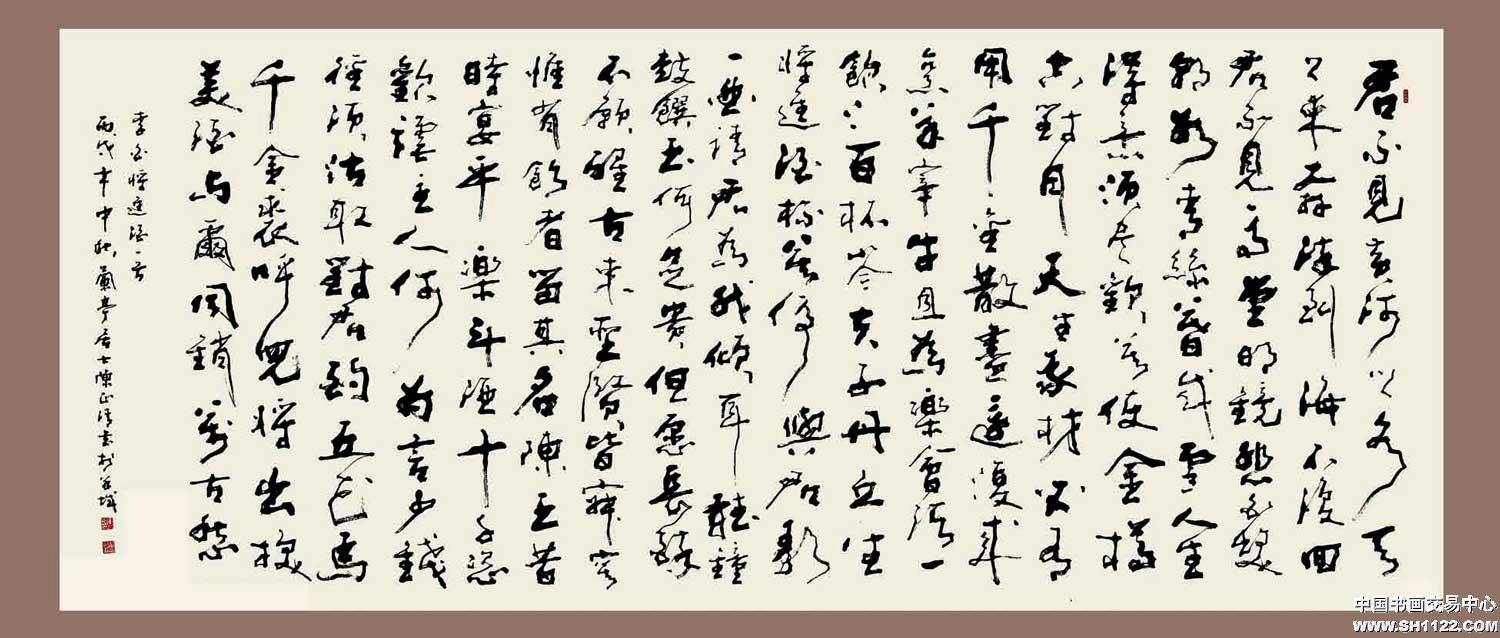 君不見黃河之水天
上來奔流到海不復回
君不見高堂明鏡悲白髮
朝如青絲暮成雪人生
得意須盡歡莫使金樽
空對月天生我材必有
用千金散盡還復來
烹羊宰牛且為樂會須一
飲三百杯岑夫子丹丘生
將進酒杯莫停與君歌
一曲請君為我傾耳聽鐘
鼓饌玉何足貴但愿長醉
不願醒古來聖賢皆寂寞
惟有飲者留其名陳王昔
時宴平樂斗酒十千恣
歡謔主人何為言少錢
徑須沽取對君酌五花馬
千金裘呼兒將出換
美酒与爾同銷萬古愁
李白將進酒一首
丙戌年中秋蘭亭居士陳正書於
中国书画交易中心
WWW.SH1122.COM